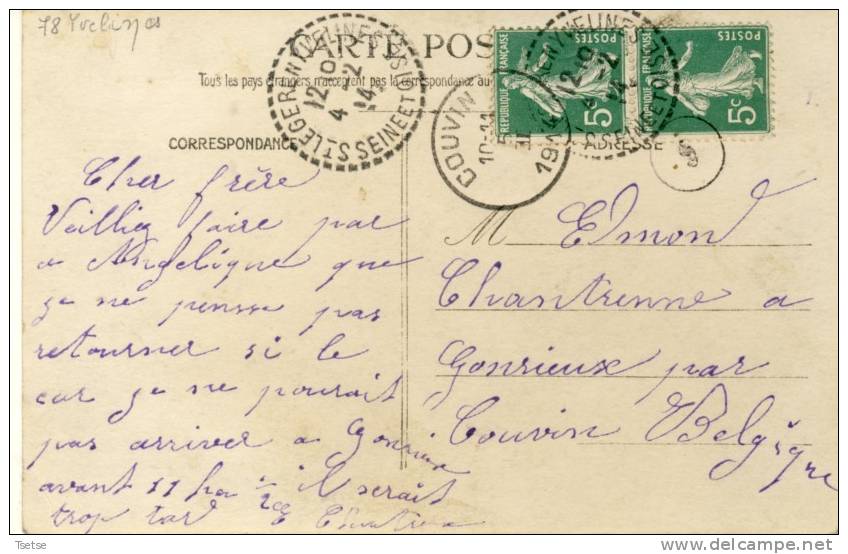 78 Yvelines
CARTE POS
Tous les pays étrangers n'acceptent pas la correspondance au
CORRESPONDANCE
ADRESSE
ST LEGER EN YVELINES SEINE ET OISE
12-10
4 -2
14
COUVIN
10-11
5 II
1914
REPUBLIQUE FRANÇAISE
POSTES
5c
POSTES
5c
Cher frère
Veilliez faire par
a Angelique que
je ne pensse pas
retourner si le
car je ne pourait
pas arriver a Gonrieux
avant 11 h a 1/2 il serait
trop tar
M Edmond
Chantrenne a
Gonrieux par
Couvin Belgique
Tsetse
delcampe.net